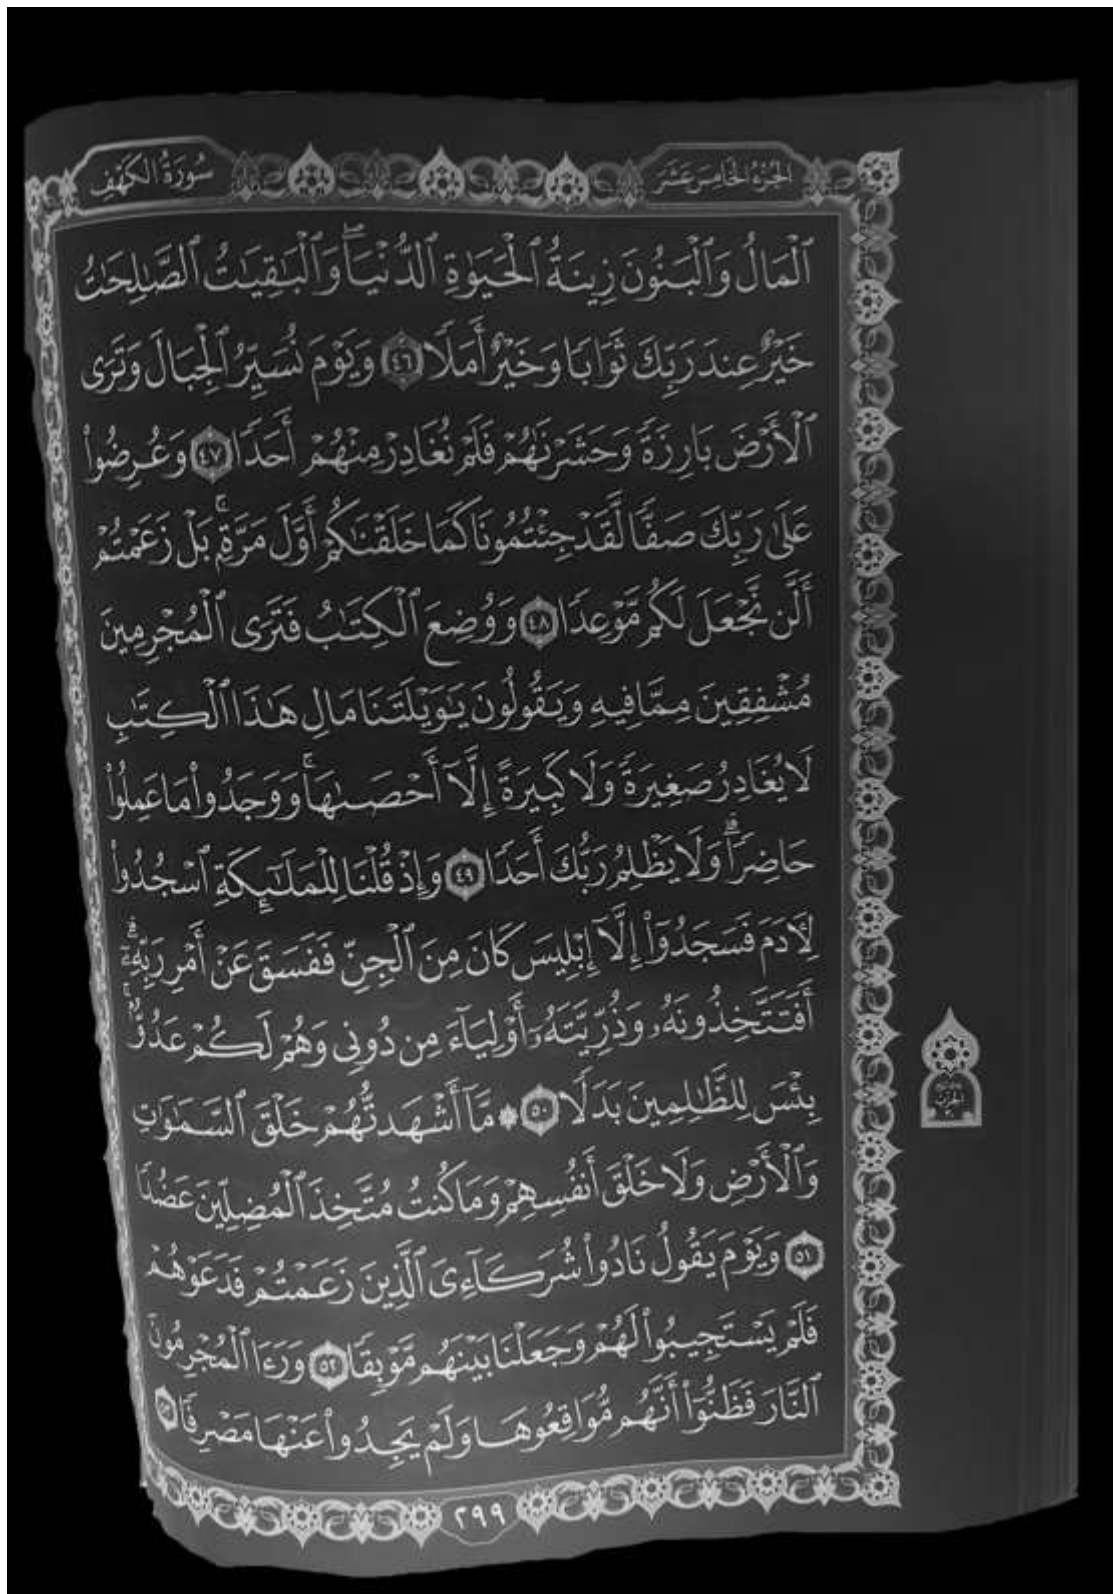 سُورَةُ الكَهْفِ
الجُزْءُ الخَامِسَ عَشَرَ
ٱلْمَالُ وَٱلْبَنُونَ زِينَةُ ٱلْحَيَوٰةِ ٱلدُّنْيَاۖ وَٱلْبَٰقِيَٰتُ ٱلصَّٰلِحَٰتُ
خَيْرٌ عِندَ رَبِّكَ ثَوَابًا وَخَيْرٌ أَمَلًا ٤٦ وَيَوْمَ نُسَيِّرُ ٱلْجِبَالَ وَتَرَى
ٱلْأَرْضَ بَارِزَةً وَحَشَرْنَٰهُمْ فَلَمْ نُغَادِرْ مِنْهُمْ أَحَدًا ٤٧ وَعُرِضُوا۟
عَلَىٰ رَبِّكَ صَفًّا لَّقَدْ جِئْتُمُونَا كَمَا خَلَقْنَٰكُمْ أَوَّلَ مَرَّةٍۭۚ بَلْ زَعَمْتُمْ
أَلَّن نَّجْعَلَ لَكُم مَّوْعِدًا ٤٨ وَوُضِعَ ٱلْكِتَٰبُ فَتَرَى ٱلْمُجْرِمِينَ
مُشْفِقِينَ مِمَّا فِيهِ وَيَقُولُونَ يَٰوَيْلَتَنَا مَالِ هَٰذَا ٱلْكِتَٰبِ
لَا يُغَادِرُ صَغِيرَةً وَلَا كَبِيرَةً إِلَّآ أَحْصَىٰهَاۚ وَوَجَدُوا۟ مَا عَمِلُوا۟
حَاضِرًاۗ وَلَا يَظْلِمُ رَبُّكَ أَحَدًا ٤٩ وَإِذْ قُلْنَا لِلْمَلَٰٓئِكَةِ ٱسْجُدُوا۟
لِـَٔادَمَ فَسَجَدُوٓا۟ إِلَّآ إِبْلِيسَ كَانَ مِنَ ٱلْجِنِّ فَفَسَقَ عَنْ أَمْرِ رَبِّهِۦٓۗ
أَفَتَتَّخِذُونَهُۥ وَذُرِّيَّتَهُۥٓ أَوْلِيَآءَ مِن دُونِى وَهُمْ لَكُمْ عَدُوٌّۢۚ
بِئْسَ لِلظَّٰلِمِينَ بَدَلًا ٥٠ ۞ مَّآ أَشْهَدتُّهُمْ خَلْقَ ٱلسَّمَٰوَٰتِ
وَٱلْأَرْضِ وَلَا خَلْقَ أَنفُسِهِمْ وَمَا كُنتُ مُتَّخِذَ ٱلْمُضِلِّينَ عَضُدًا
٥١ وَيَوْمَ يَقُولُ نَادُوا۟ شُرَكَآءِىَ ٱلَّذِينَ زَعَمْتُمْ فَدَعَوْهُمْ
فَلَمْ يَسْتَجِيبُوا۟ لَهُمْ وَجَعَلْنَا بَيْنَهُم مَّوْبِقًا ٥٢ وَرَءَا ٱلْمُجْرِمُونَ
ٱلنَّارَ فَظَنُّوٓا۟ أَنَّهُم مُّوَاقِعُوهَا وَلَمْ يَجِدُوا۟ عَنْهَا مَصْرِفًا ٥٣
٢٩٩